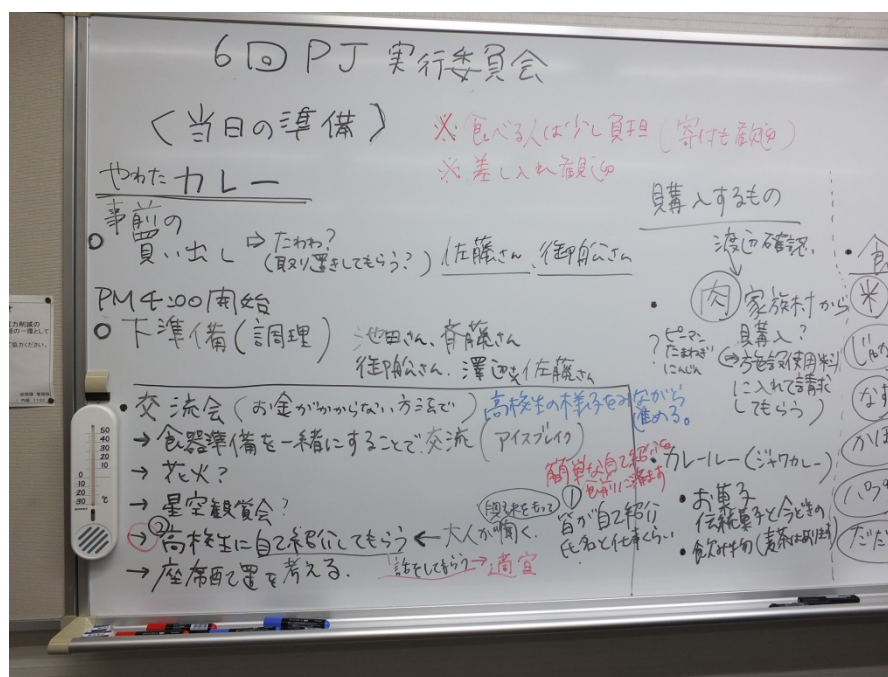 6回PJ 実行委員会
〈当日の準備〉
※食べる人は少し負担(寄付も歓迎)
※差し入れ歓迎
やわたカレー
事前の
買い出し ⇨ たわわ?
(取り置きしてもらう?) 佐藤さん、御船さん
PM4:00開始
下準備(調理) 池田さん、斉藤さん
御船さん、澤辺さん、佐藤さん
・交流会(お金がかからない方法で)
高校生の様子をみながら
進める。
→食器準備を一緒にすることで交流(アイスブレイク)
→花火?
→星空観賞会?
→②高校生に自己紹介してもらう ← 大人が聞く。
興味をもって
→座席配置を考える。
話をしてもらう→適宜
簡単な自己紹介を
①皆が自己紹介
氏名と仕事くらい
購入するもの
渡辺確認
・肉 家族村から
購入?
(⇨施設使用料
に入れて請求
してもらう)
?ピーマン
たまねぎ
にんじん
・カレールー(ジャワカレー)
・お菓子
伝統菓子と今どきの
・飲み物(麦茶はあります)
・食
米
じゃ
なす
かぼ
パプ
だだ
50
40
30
20
10
0
10
20
30
℃